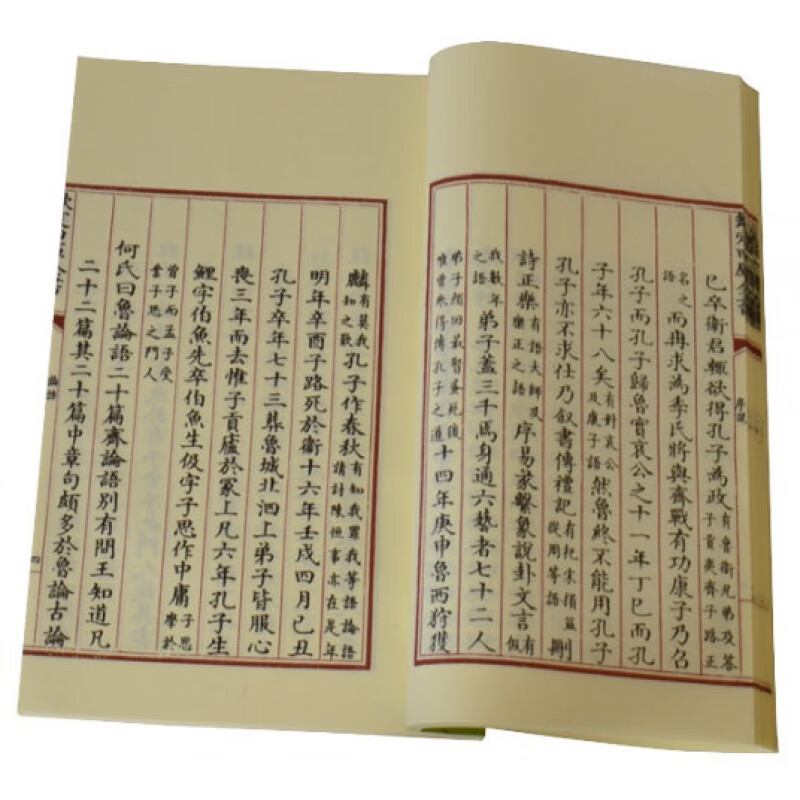 已卒衛君輒欲得孔子為政有魯衛兄弟及答子貢夷齊子路正
名之語而冉求為季氏將與齊戰有功康子乃召
孔子而孔子歸魯實哀公之十一年丁巳而孔
子年六十八矣有對哀公及康子語然魯終不能用孔子
孔子亦不求仕乃叙書傳禮記有杞宋損益從周等語刪
詩正樂有語大師及樂正之語序易彖繫象說卦文言有假
我數年之語弟子蓋三千焉身通六藝者七十二人
弟子顔回最賢蚤死後惟曾參得傳孔子之道十四年庚申魯西狩獲
序說
麟有莫我知之歎孔子作春秋有知我罪我等語論語請討陳恒事亦在是年
明年辛酉子路死於衛十六年壬戌四月己丑
孔子卒年七十三葬魯城北泗上弟子皆服心
喪三年而去惟子貢廬於冢上凡六年孔子生
鯉字伯魚先卒伯魚生伋字子思作中庸子思學於
曾子而孟子受業子思之門人
何氏曰魯論語二十篇齊論語別有問王知道凡
二十二篇其二十篇中章句頗多於魯論古論
論語
四